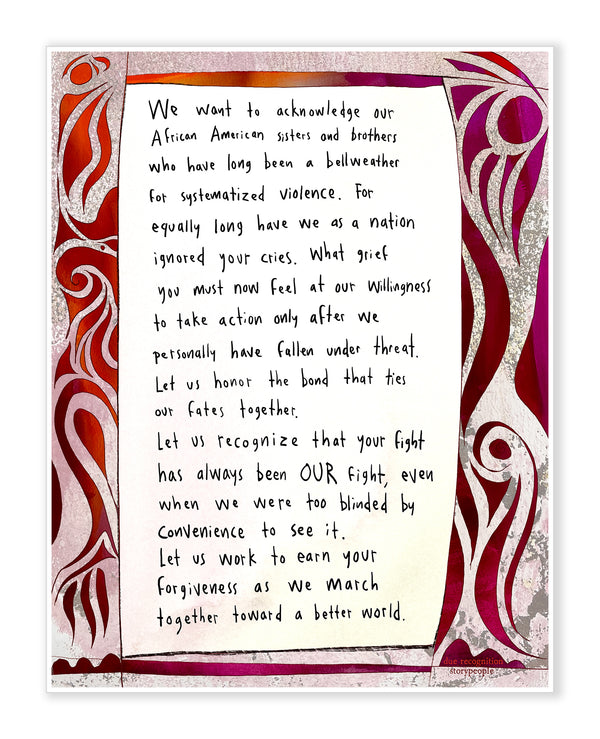 We want to acknowledge our
African American sisters and brothers
who have long been a bellweather
for systematized violence. For
equally long have we as a nation
ignored your cries. What grief
you must now feel at our willingness
to take action only after we
personally have fallen under threat.
Let us honor the bond that ties
our fates together.
Let us recognize that your fight
has always been OUR fight, even
when we were too blinded by
convenience to see it.
Let us work to earn your
forgiveness as we march
together toward a better world.
due recognition
storypeople